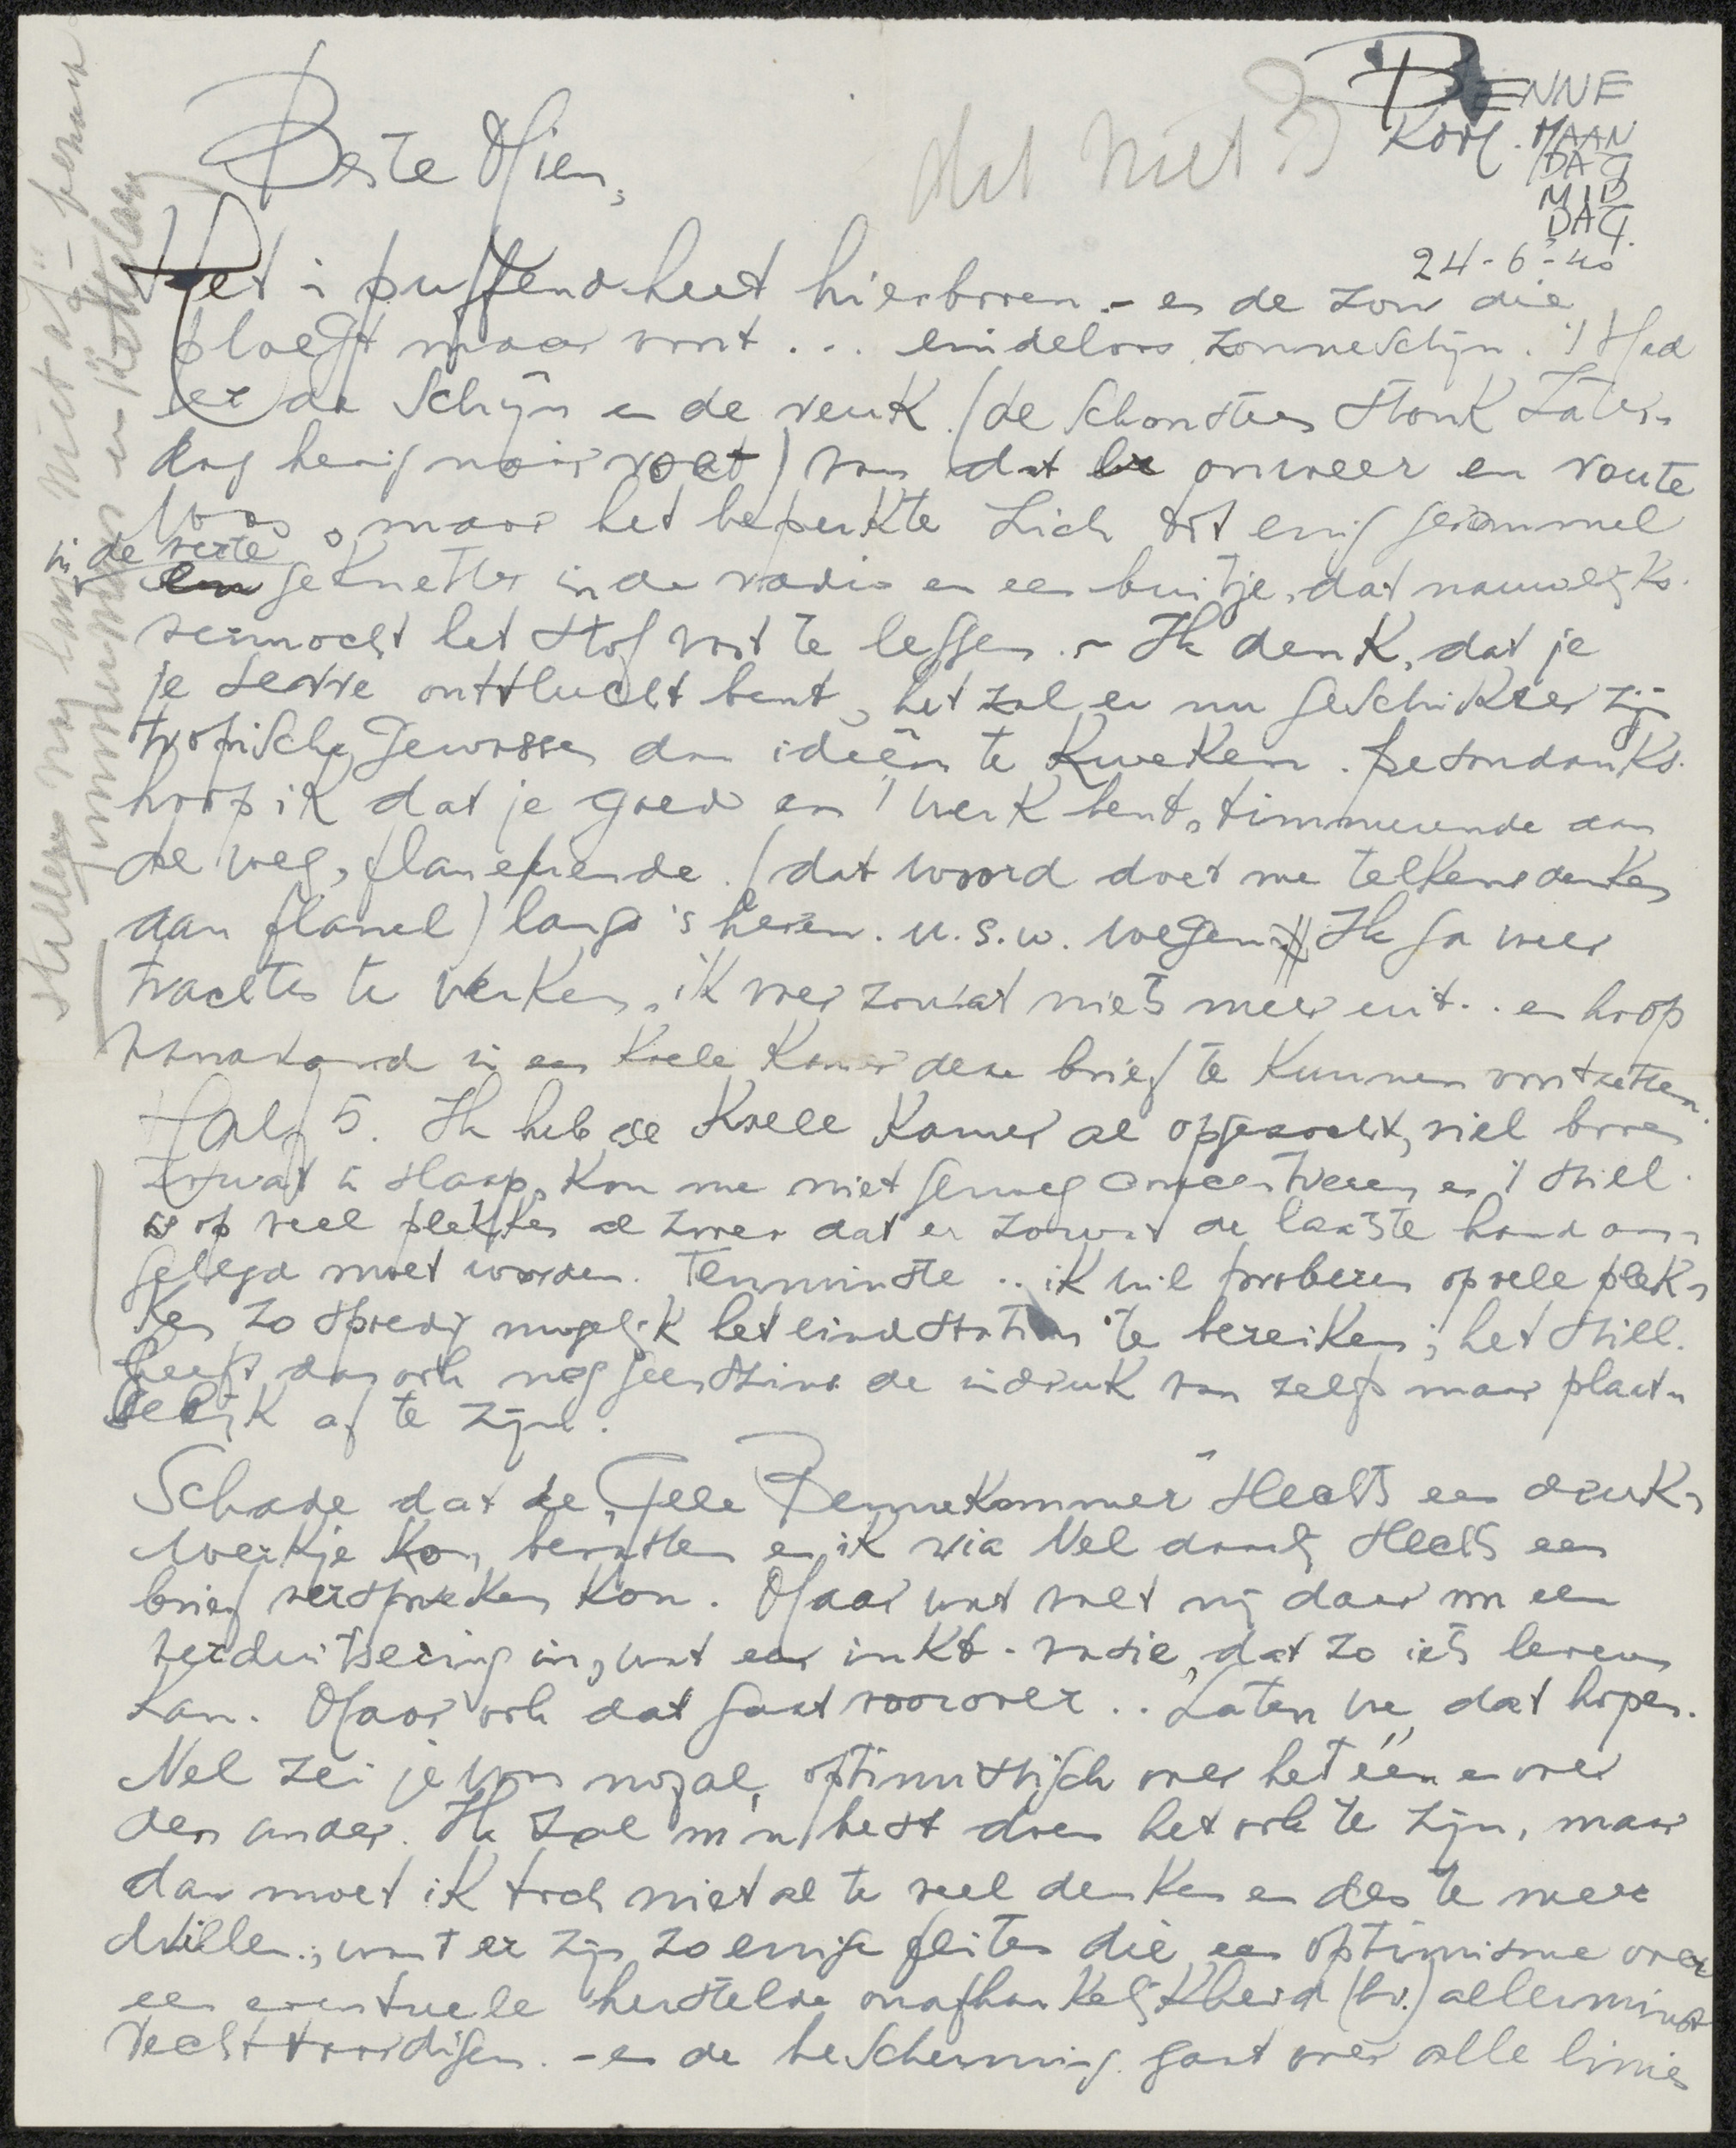 BENNE
Kom. MAAN
DAG
MID
DAG.
24-6-40
Beste Mien,
Het is puffend heet hierboven - en de zon die
ploegt maar voort ... eindeloos zonneschijn. 't Had
er de schijn en de reuk (de schoorsteen stonk Zater-
dag hevig naar roet) van dat er onweer en route
was, maar het beperkte zich tot enig gerommel
in de verte
geknetter in de radio en een buitje, dat nauwelijks
vermocht het stof vast te leggen. - Ik denk, dat je
je serre ontvlucht bent, het zal er nu geschikter zijn
tropische gewassen dan ideeën te kweken. Desondanks
hoop ik dat je goed en 't werk bent, timmerende aan
de weg, flanerende (dat woord doet me telkens denken
aan flanel) langs 's heren u.s.w. wegen. Ik ga weer
trachten te werken, ik voer zowat niets meer uit.. en hoop
vanavond in een koele kamer deze brief te kunnen voortzetten.
Half 5. Ik heb de koele kamer al opgezocht, viel boven
zowat in slaap, kon me niet genoeg concentreren en 't still.
is op veel plekken al zover dat er zowat de laatste hand aan
gelegd moet worden. Tenminste .. ik wil proberen op vele plek-
ken zo spoedig mogelijk het eindstation te bereiken; het still.
heeft dan ook nog geenszins de indruk van zelfs maar plaat-
selijk af te zijn.
Schade dat de "Gele Bennekommer" slechts een druk-
werkje kon bevatten en ik via Nel daarbij slechts een
brief verstrekken kon. Maar wat valt mij daar nu een
verduitsering in, wat een inkt-vasie, dat zo iets leven
kan. Maar ook dat gaat voorover .. Laten we dat hopen.
Nel zei je was nogal optimistisch over het één en over
den ander. Ik zal m'n best doen het ook te zijn, maar
dan moet ik toch niet al te veel denken en des te meer
willen; want er zijn zo enige feiten die een optimisme over
een eventuele herstelde onafhankelijkheid (bv.) allerminst
rechtvaardigen. - en de bescherming gaat over alle linies